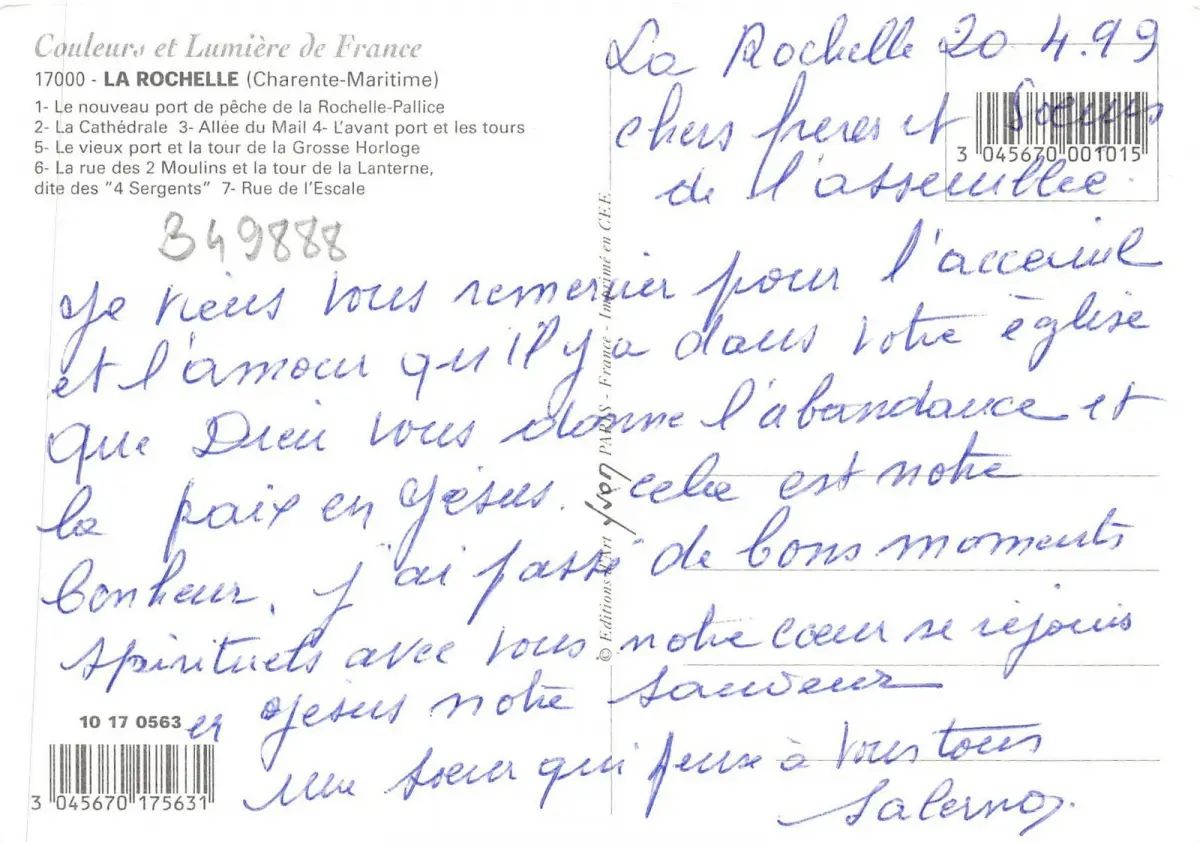 Couleurs et Lumière de France
17000 - LA ROCHELLE (Charente-Maritime)
1- Le nouveau port de pêche de la Rochelle-Pallice
2- La Cathédrale 3- Allée du Mail 4- L'avant port et les tours
5- Le vieux port et la tour de la Grosse Horloge
6- La rue des 2 Moulins et la tour de la Lanterne,
dite des "4 Sergents" 7- Rue de l'Escale
349888
La Rochelle 20 4.99
chers freres et Soeurs
3 045670 001015
de l'assemblée.
Je viens vous remercier pour l'acceuil
et l'amour qu'il y a dans votre église
que Dieu vous donne l'abandance et
la paix en Jésus. cela est notre
bonheur. j'ai passé de bons moments
spirituels avec vous notre cœur se réjouis
en Jésus notre sauveur
une sœur qui pense à vous tous
Salerno
10 17 0563
3 045670 175631
© Editions d'Art Yvon PARIS - France - Imprimé en C.E.E.